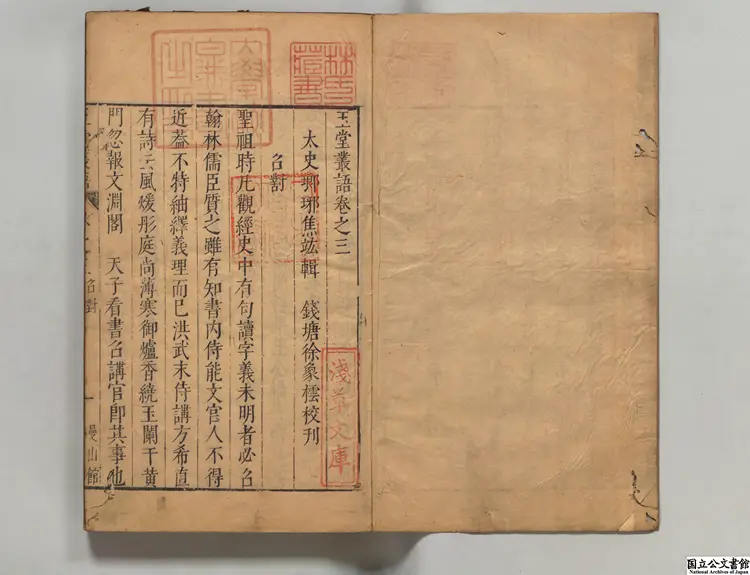 玉堂叢語卷之三
太史瑯琊焦竑輯　錢塘徐象橒校刊
召對
聖祖時凡觀經史中有句讀字義未明者必召
翰林儒臣質之雖有知書內侍能文官人不得
近葢不特紬繹義理而已洪武末侍講方希直
有詩云風煖彤庭尚薄寒御爐香繞玉闌干黄
門忽報文淵閣　天子看書召講官卽其事也
召對
一
曼山館
林氏藏書
淺草文庫
国立公文書館
National Archives of Japan